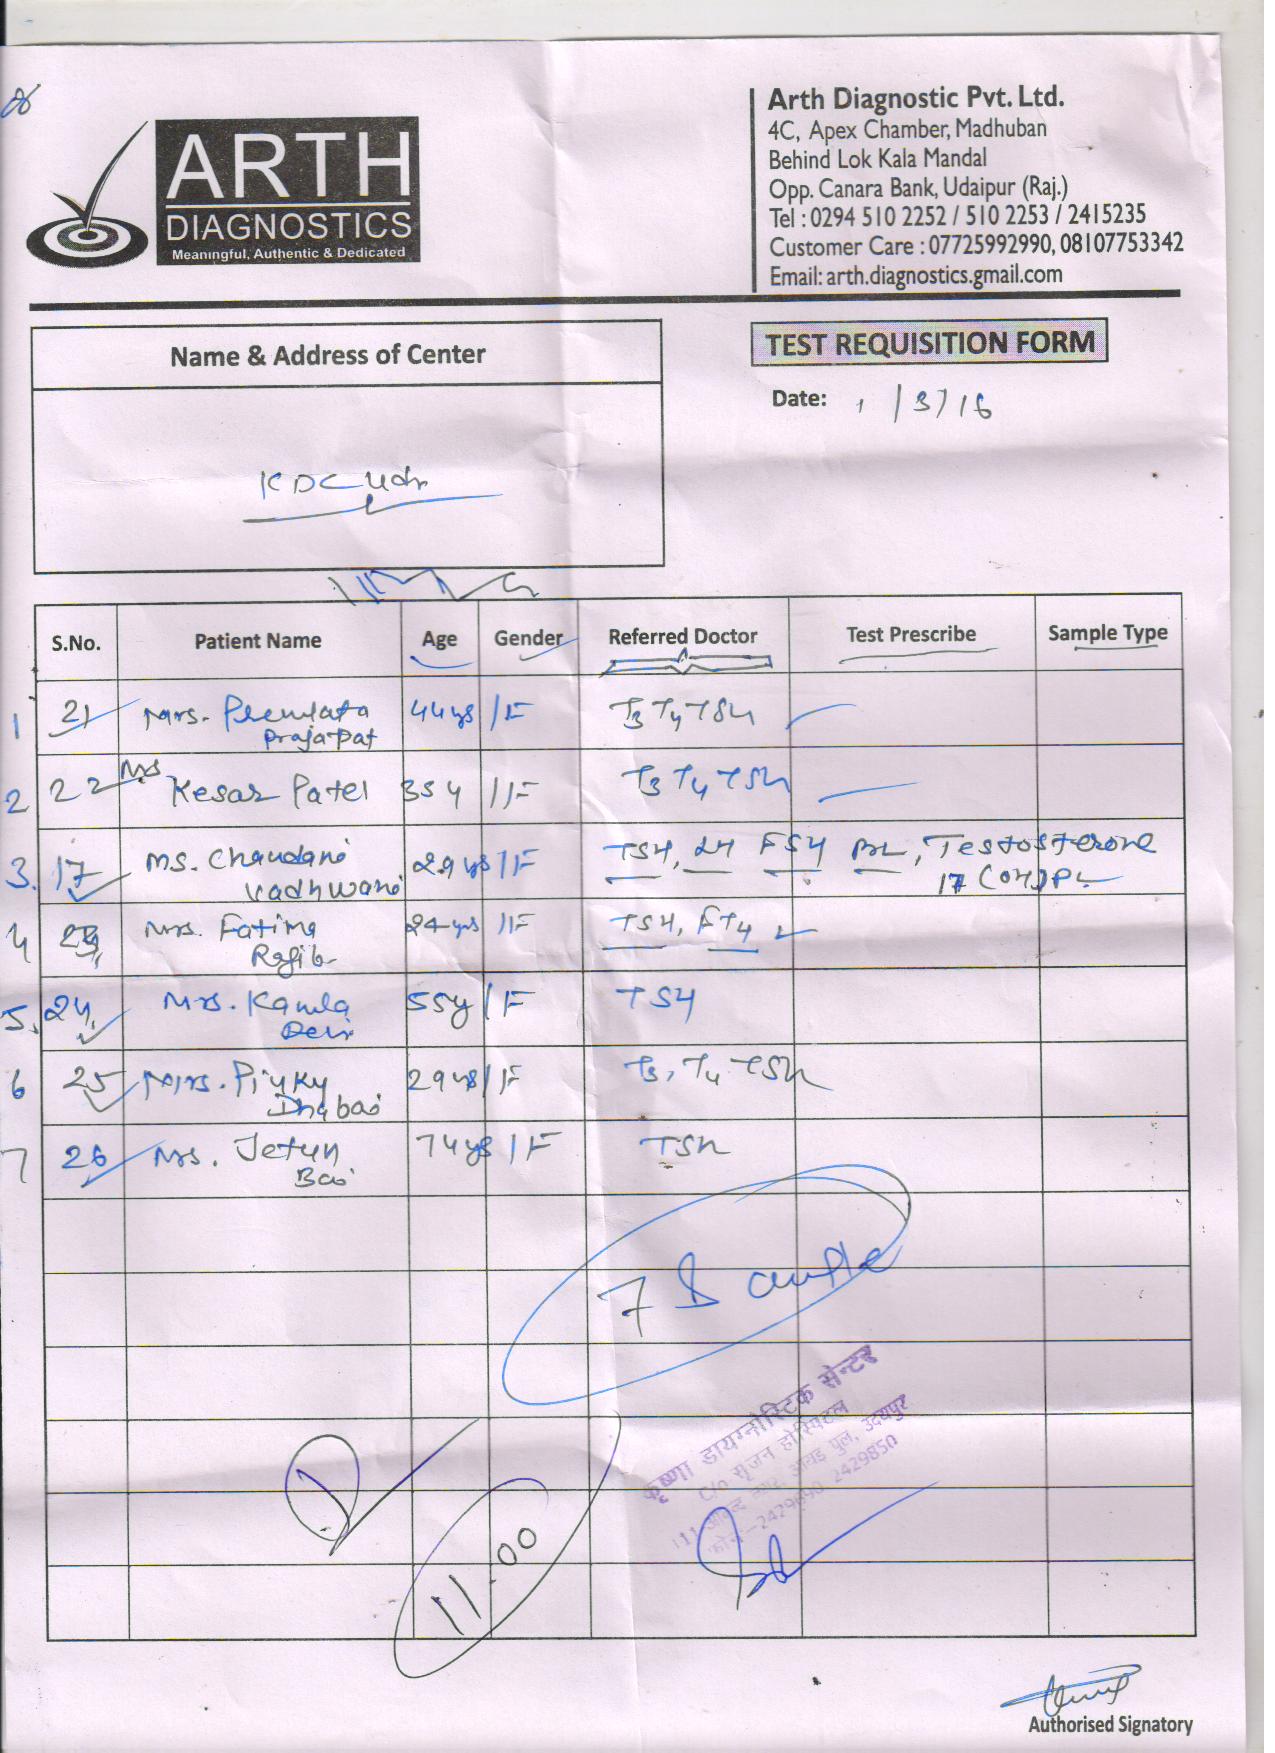 ARTH
DIAGNOSTICS
Meaningful, Authentic & Dedicated
Arth Diagnostic Pvt. Ltd.
4C, Apex Chamber, Madhuban
Behind Lok Kala Mandal
Opp. Canara Bank, Udaipur (Raj.)
Tel : 0294 510 2252 / 510 2253 / 2415235
Customer Care : 07725992990, 08107753342
Email: arth.diagnostics.gmail.com
Name & Address of Center
TEST REQUISITION FORM
Date: 1/3/16
KDC Udr
S.No. Patient Name Age Gender Referred Doctor Test Prescribe Sample Type
1 21 Mrs. Premlata 44 ys /F T3 T4 TSH
Prajapat
2 22 Mrs Kesar Patel 35 y /F T3 T4 TSH
3. 17 Ms. Chandani 29 ys /F TSH, LH FSH PRL, Testosterone
Vadhwani 17 (OH)P
4 Mrs. Fatima 24 ys /F TSH, FT4
5. 24 Mrs. Kamla 55y /F TSH
Devi
6 25 Mrs. Pinky 29 ys /F T3, T4 TSH
Dhabai
7 26 Mrs. Jetun 74 ys /F TSH
Bai
7 Sample
कृष्णा डायग्नोस्टिक सेन्टर
C/o सृजन हॉस्पिटल
पुल, उदयपुर
2429850
11.00
Authorised Signatory